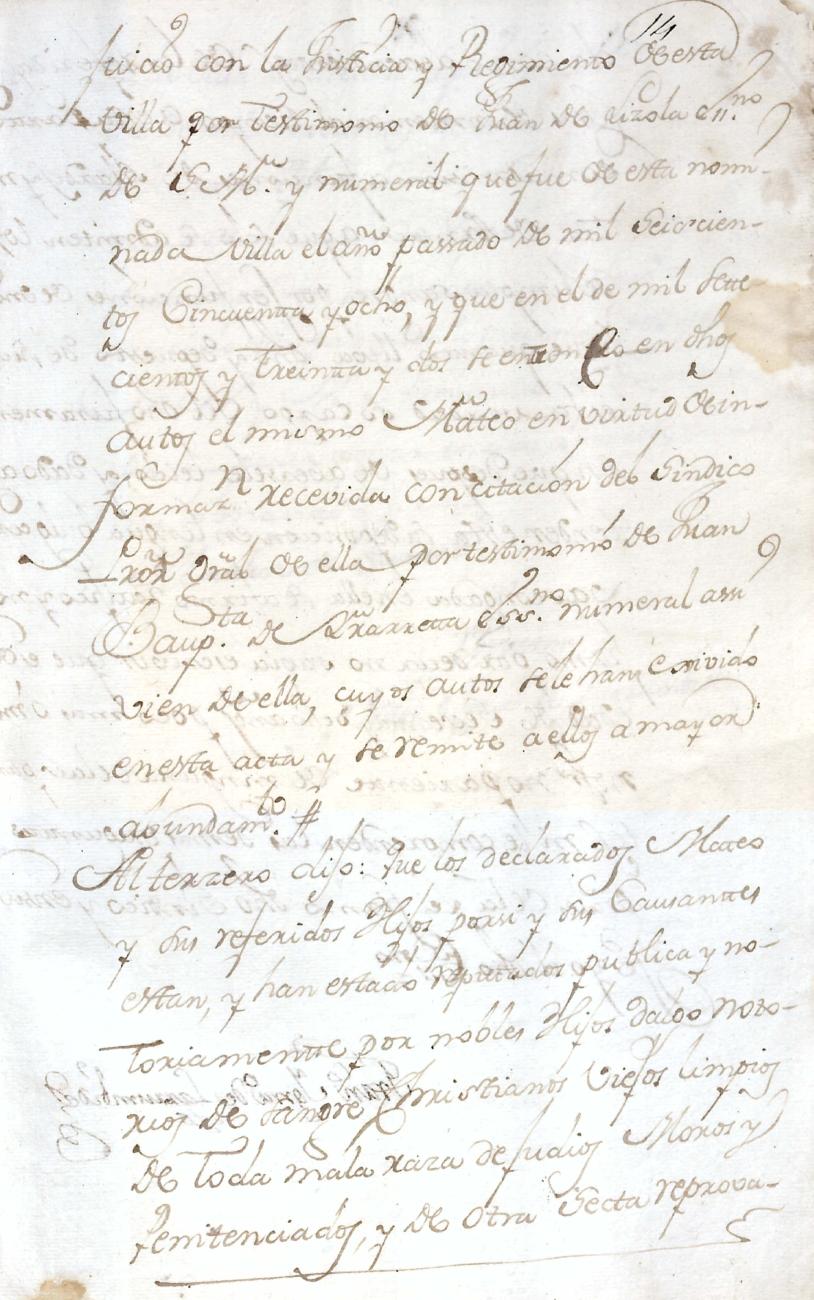 14
juicio con la Justicia y Regimiento de esta
villa por testimonio de Juan de Lizola ess.no
de S. M. y numeral que fue de esta nomi-
nada villa el año passado de mil seiscien-
tos cincuenta y ocho, y que en el de mil sete
cientos y treinta y dos se entendió en dhos
autos el mismo Matheo en virtud de in-
formaz.n recevida con citación del sindico
Pror Gral de ella por testimonio de Juan
Baup.ta de ess.no numeral assi
vien de ella, cuyos autos se le han exivido
en esta acta y se remite a ellos a mayor
abundam.to #
Al terzero dijo: que los declarados Mateo
y sus referidos Hijos por si y sus Causantes
estan, y han estado reputados publica y no-
toriamente por nobles Hijos dalgo noto-
rios de sangre Christianos Viejos limpios
de toda mala raza de judios Moros y
Penitenciados, y de otra secta reprova-